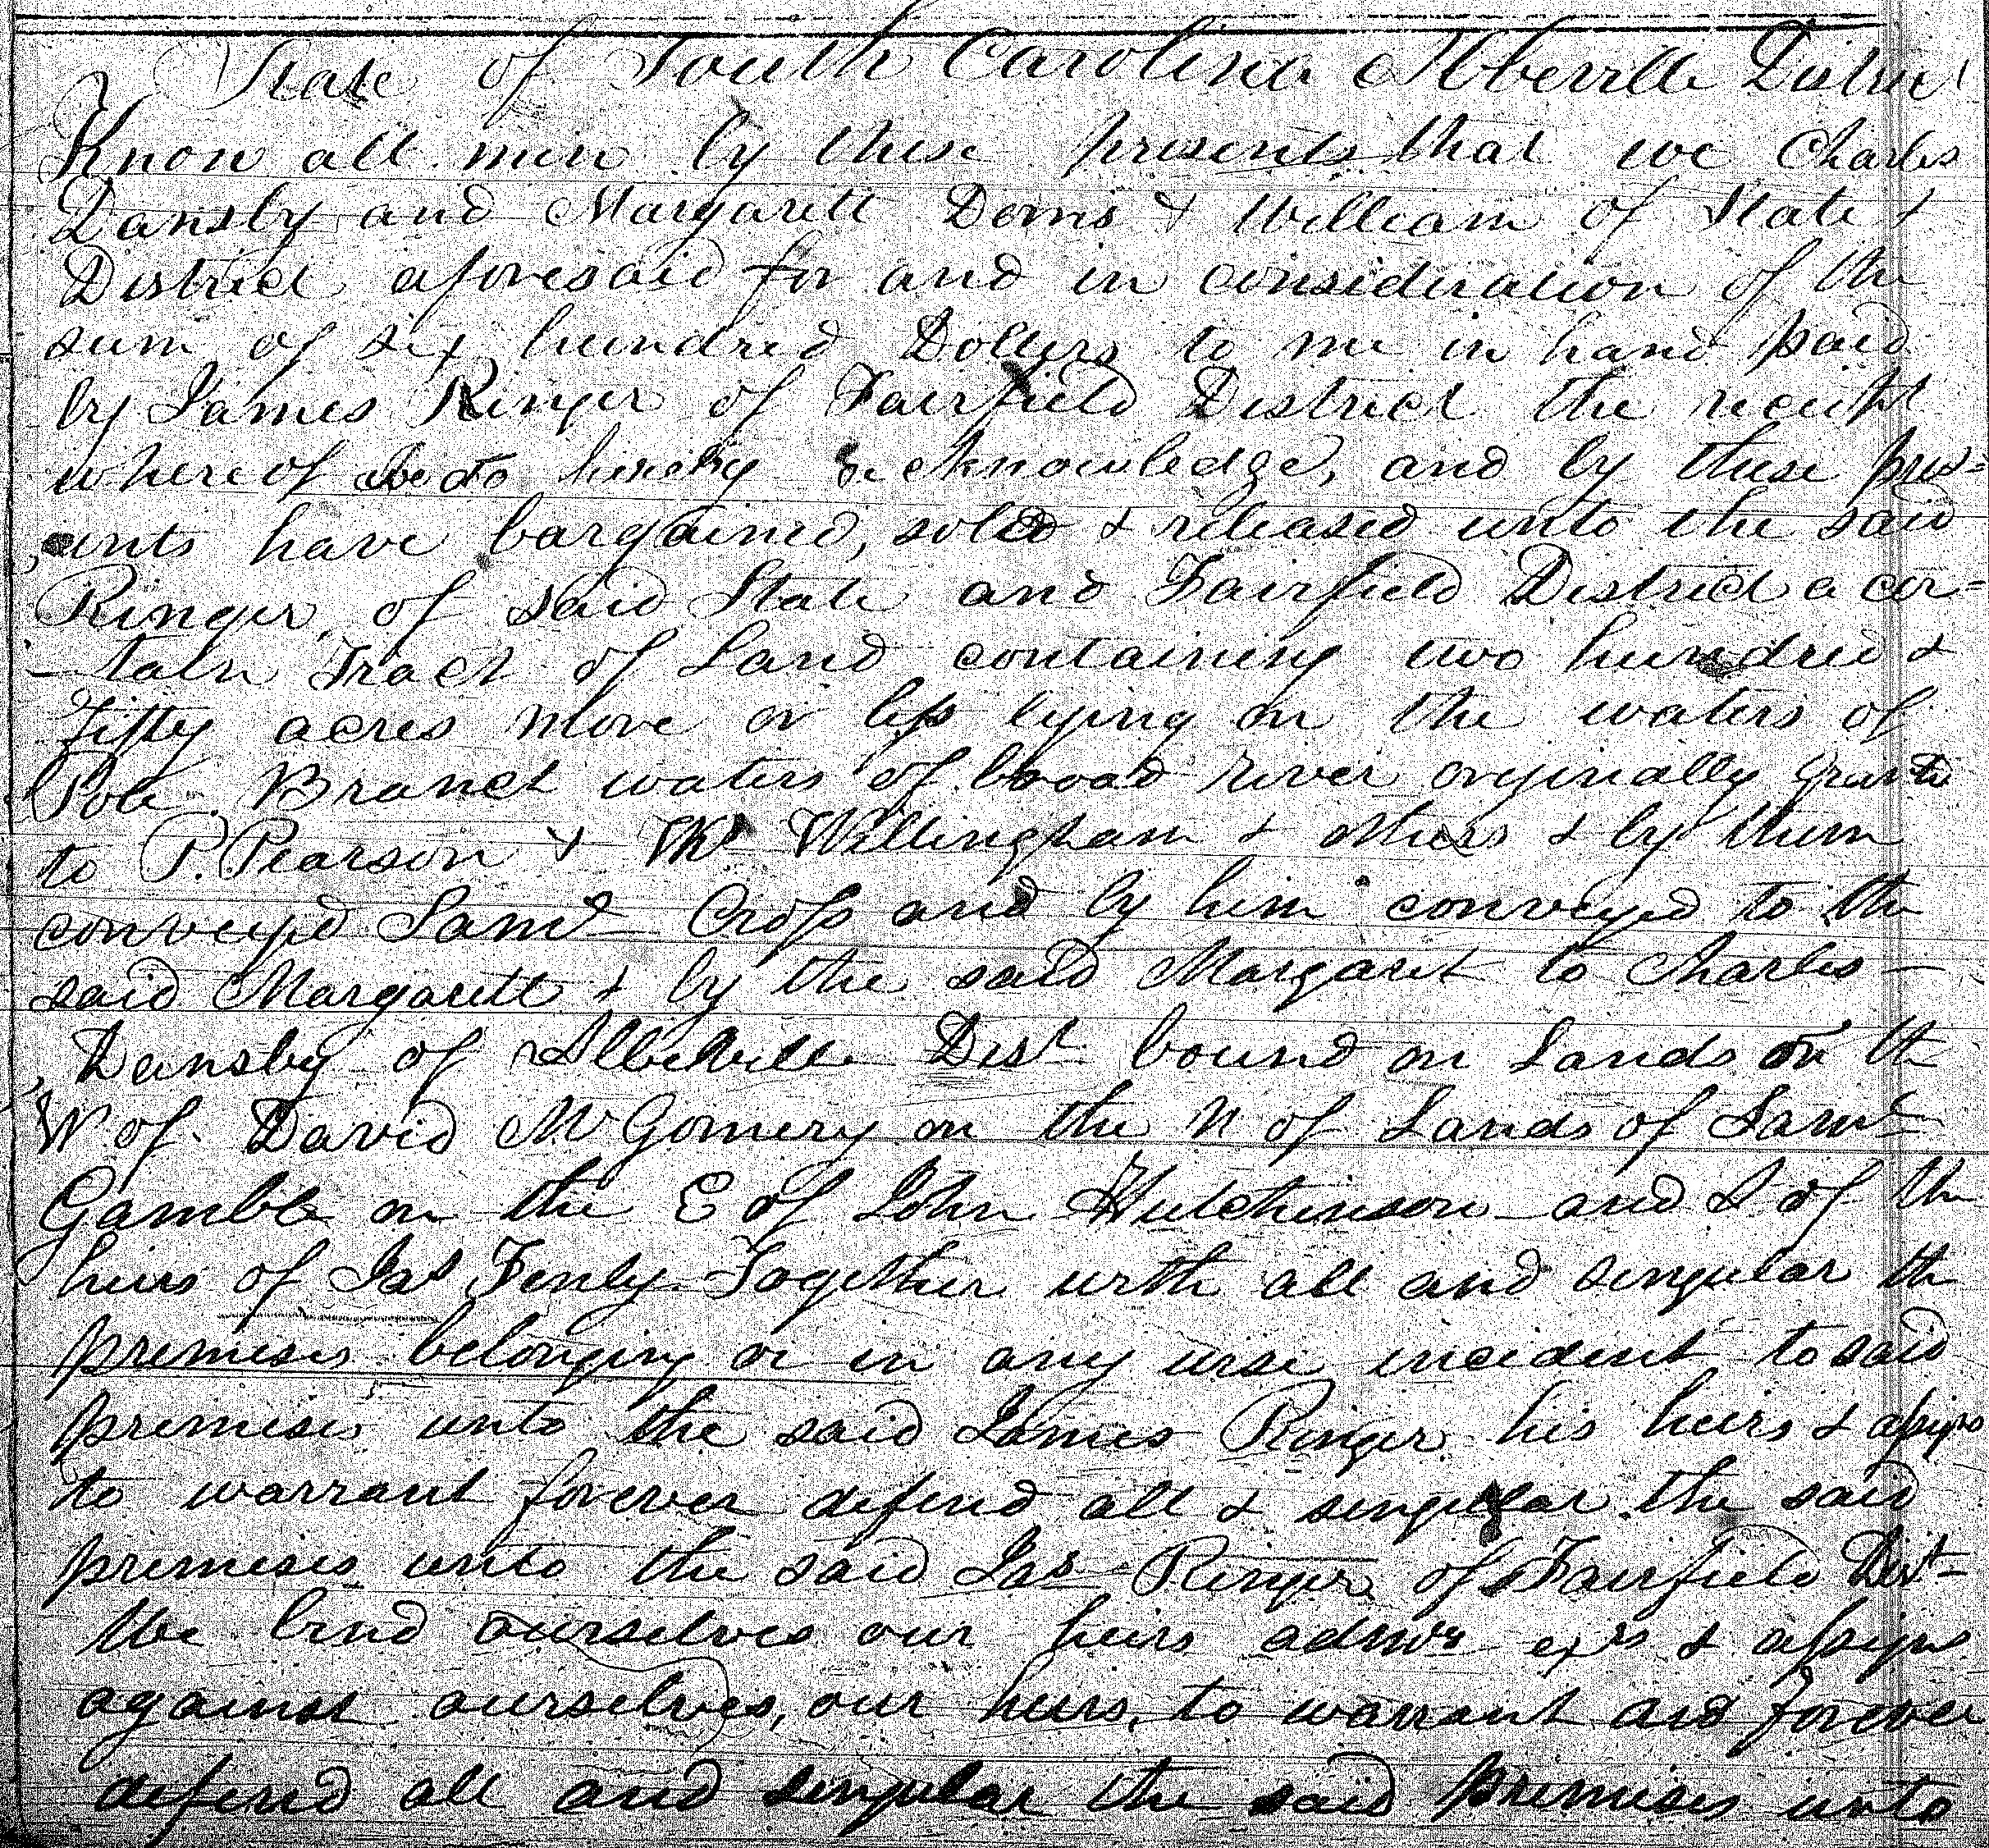 State of South Carolina Abberville District
Know all men by these presents that we Charles
Dansby and Margarett Dorris & William of State &
District aforesaid for and in consideration of the
sum of six hundred Dollers to me in hand paid
by James Ringer of Fairfield District the receipt
whereof we do hereby acknowledge, and by these pres=
ents have bargained, sold & released unto the said
Ringer of said State and Fairfield District a cer=
-tain Tract of Land containing two hundred &
Fifty acres more or less lying on the waters of
Pole Branch waters of broad river originally grante
to P. Pearson & Wm Willingham & others & by them
conveyed Saml Cross and by him conveyed to the
said Margarett & by the said Margaret to Charles
Dansby of Abbeville Dist bound on Lands on th
W. of David McGomery on the N of Lands of Saml
Gamble on the E of John Hutchinson and S of the
heirs of Jas Fenly Together with all and singular th
premises belonging or in any wise incident to said
premises unto the said James Ringer his heirs & assigns
to warrant forever defend all & singular the said
premises unto the said Jas Ringer of Fairfield Dist
We bind ourselves our heirs admrs exrs & assigns
against ourselves, our heirs, to warrant and forever
defend all and singular the said premises unto